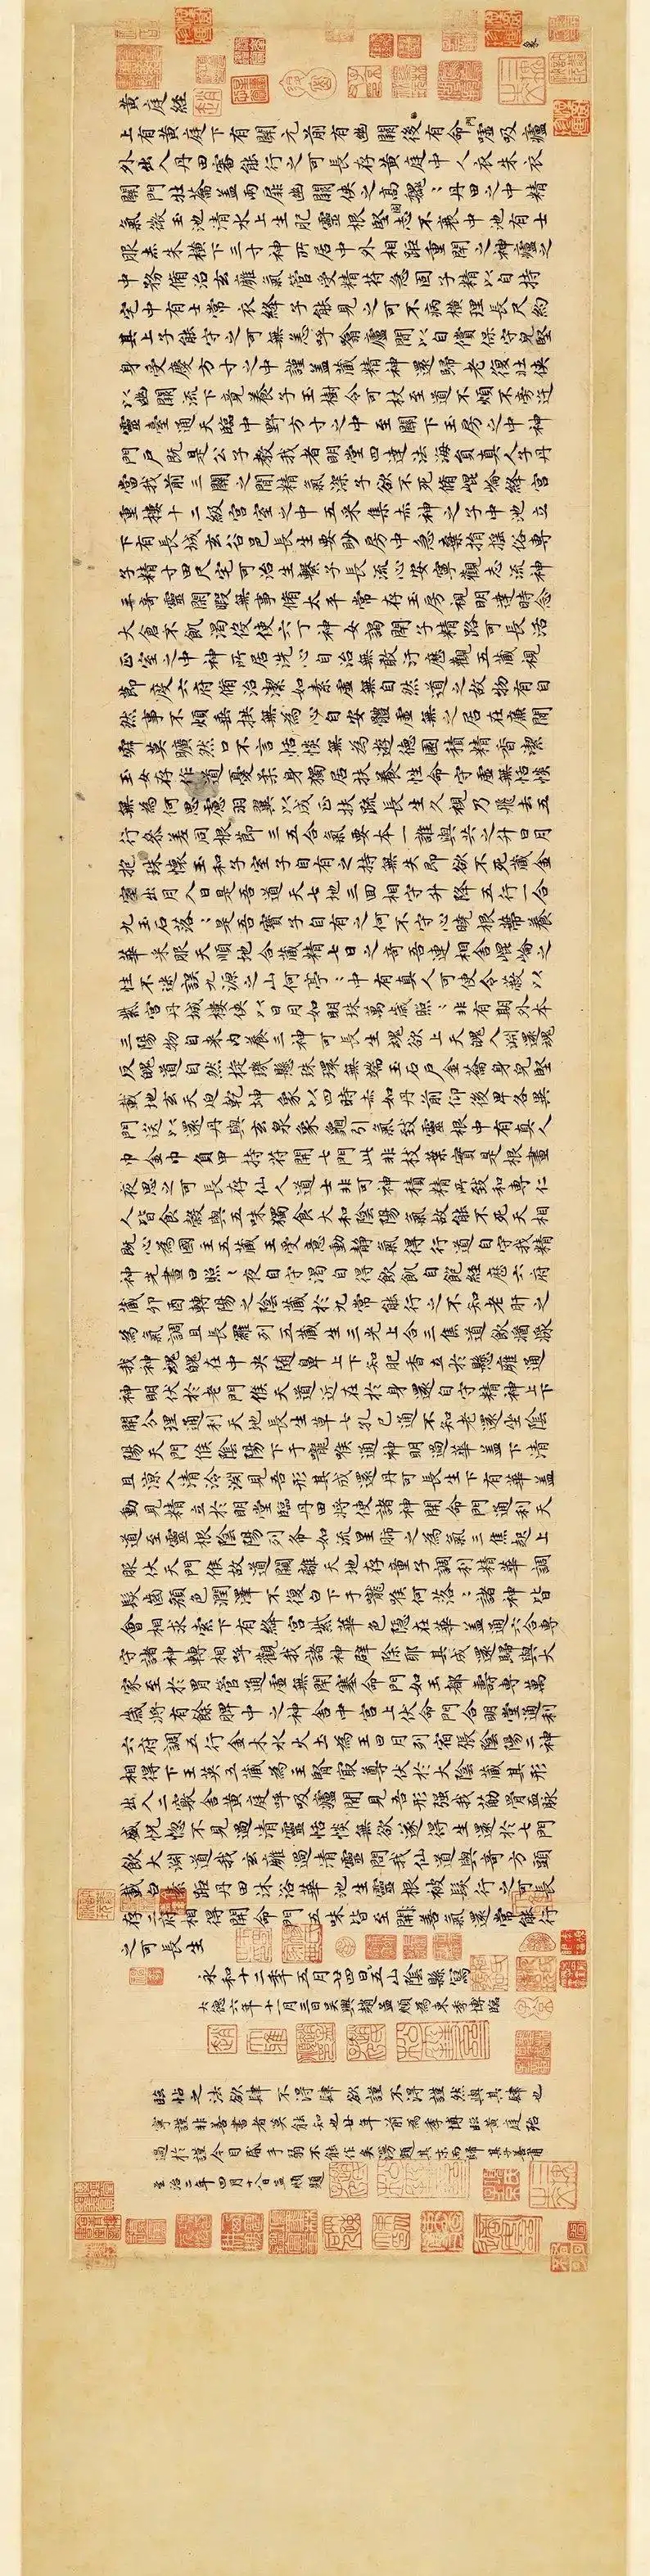 黃庭経
上有黃庭下有關元前有幽關後有命門噓吸廬
外出入丹田審能行之可長存黃庭中人衣朱衣
關門壯蘥蓋兩扉幽關俠之高巍〻丹田之中精
氣微玉池清水上生肥靈根堅固志不衰中池有士
服赤朱橫下三寸神所居中外相距重閉之神廬之
中務脩治玄癰氣管受精符急固子精以自持
宅中有士常衣絳子能見之可不病橫理長尺約
其上子能守之可無恙呼翕廬間以自償保守皃堅
身受慶方寸之中謹蓋藏精神還歸老復壯俠
以幽關流下竟養子玉樹令可杖至道不煩不旁迕
靈臺通天臨中野方寸之中至關下玉房之中神
門戶既是公子教我者明堂四達法海員真人子丹
當我前三關之間精氣深子欲不死脩崐崘絳宮
重樓十二級宮室之中五采集赤神之子中池立
下有長城玄谷邑長生要眇房中急棄捐搖俗專
子精寸田尺宅可治生繫子長流心安寧觀志流神
三奇靈閑暇無事脩太平常存玉房視明達時念
大倉不飢渴役使六丁神女謁閉子精路可長活
正室之中神所居洗心自治無敢汙歷觀五藏視
節度六府脩治潔如素虛無自然道之故物有自
然事不煩垂拱無為心自安體虛無之居在廉間
寂莫曠然口不言恬惔無為遊德園積精香潔
玉女存作道憂柔身獨居扶養性命守虛無恬惔
無為何思慮羽翼以成正扶疏長生久視乃飛去五
行參差同根節三五合氣要本一誰與共之升日月
抱珠懷玉和子室子自有之持無失即欲不死藏金
室出月入日是吾道天七地三回相守升降五行一合
九玉石落〻是吾寶子自有之何不守心曉根蒂養
華采服天順地合藏精七日之奇吾連相舍崐崘之
性不迷誤九源之山何亭〻中有真人可使令蔽以
紫宮丹城樓俠以日月如明珠萬歲照〻非有期外本
三陽物自来內養三神可長生魂欲上天魄入淵還魂
反魄道自然旋璣懸珠環無端玉石戶金蘥身皃堅
載地玄天迫乾坤象以四時赤如丹前仰後卑各異
門送以還丹與玄泉象龜引氣致靈根中有真人
巾金巾負甲持符開七門此非枝葉實是根晝
夜思之可長存仙人道士非可神積精所致和專仁
人皆食穀與五味獨食大和陰陽氣故能不死天相
既心為國主五藏王受意動靜氣得行道自守我精
神光晝日照〻夜自守渴自得飲飢自飽經歷六府
藏卯酉轉陽之陰藏於九常能行之不知老肝之
為氣調且長羅列五藏生三光上合三焦道飲漿
我神魂魄在中央随鼻上下知肥香立於懸癰通
神明伏於老門候天道近在於身還自守精神上下
開分理通利天地長生草七孔已通不知老還坐陰
陽天門候陰陽下于嚨喉通神明過華蓋下清
且涼入清泠淵見吾形其成還丹可長生下有華蓋
動見精立於明堂臨丹田將使諸神開命門通利天
道至靈根陰陽列布如流星肺之為氣三焦起上
服伏天門候故道闚離天地存童子調利精華調
髮齒顏色潤澤不復白下于嚨喉何落〻諸神皆
會相求索下有絳宮紫華色隱在華蓋通六合專
守諸神轉相呼觀我諸神辟除耶其成還歸與大
家至於胃管通虛無閉塞命門如玉都壽專萬
歲將有餘脾中之神舍中宮上伏命門合明堂通利
六府調五行金木水火土為王日月列宿張陰陽二神
相得下玉英五藏為主腎最尊伏於大陰藏其形
出入二竅舍黃庭呼吸廬間見吾形强我筋骨血脉
盛怳惚不見過清靈恬惔無欲遂得生還於七門
飲大淵道我玄癰過清靈問我仙道與奇方頭
載白素距丹田沐浴華池生靈根被髮行之可長
存二府相得開命門五味皆至開善氣還常能行
之可長生
永和十二年五月廿四日五山陰縣寫
大德六年十一月三日吳興趙孟頫為束季博臨
臨帖之法欲肆不得肆欲謹不得謹然與其肆也
寧謹非善書者莫能知也廿年前為季博臨黃庭殆
過於謹今目昏手弱不能作矣
至治二年四月十八日孟頫題